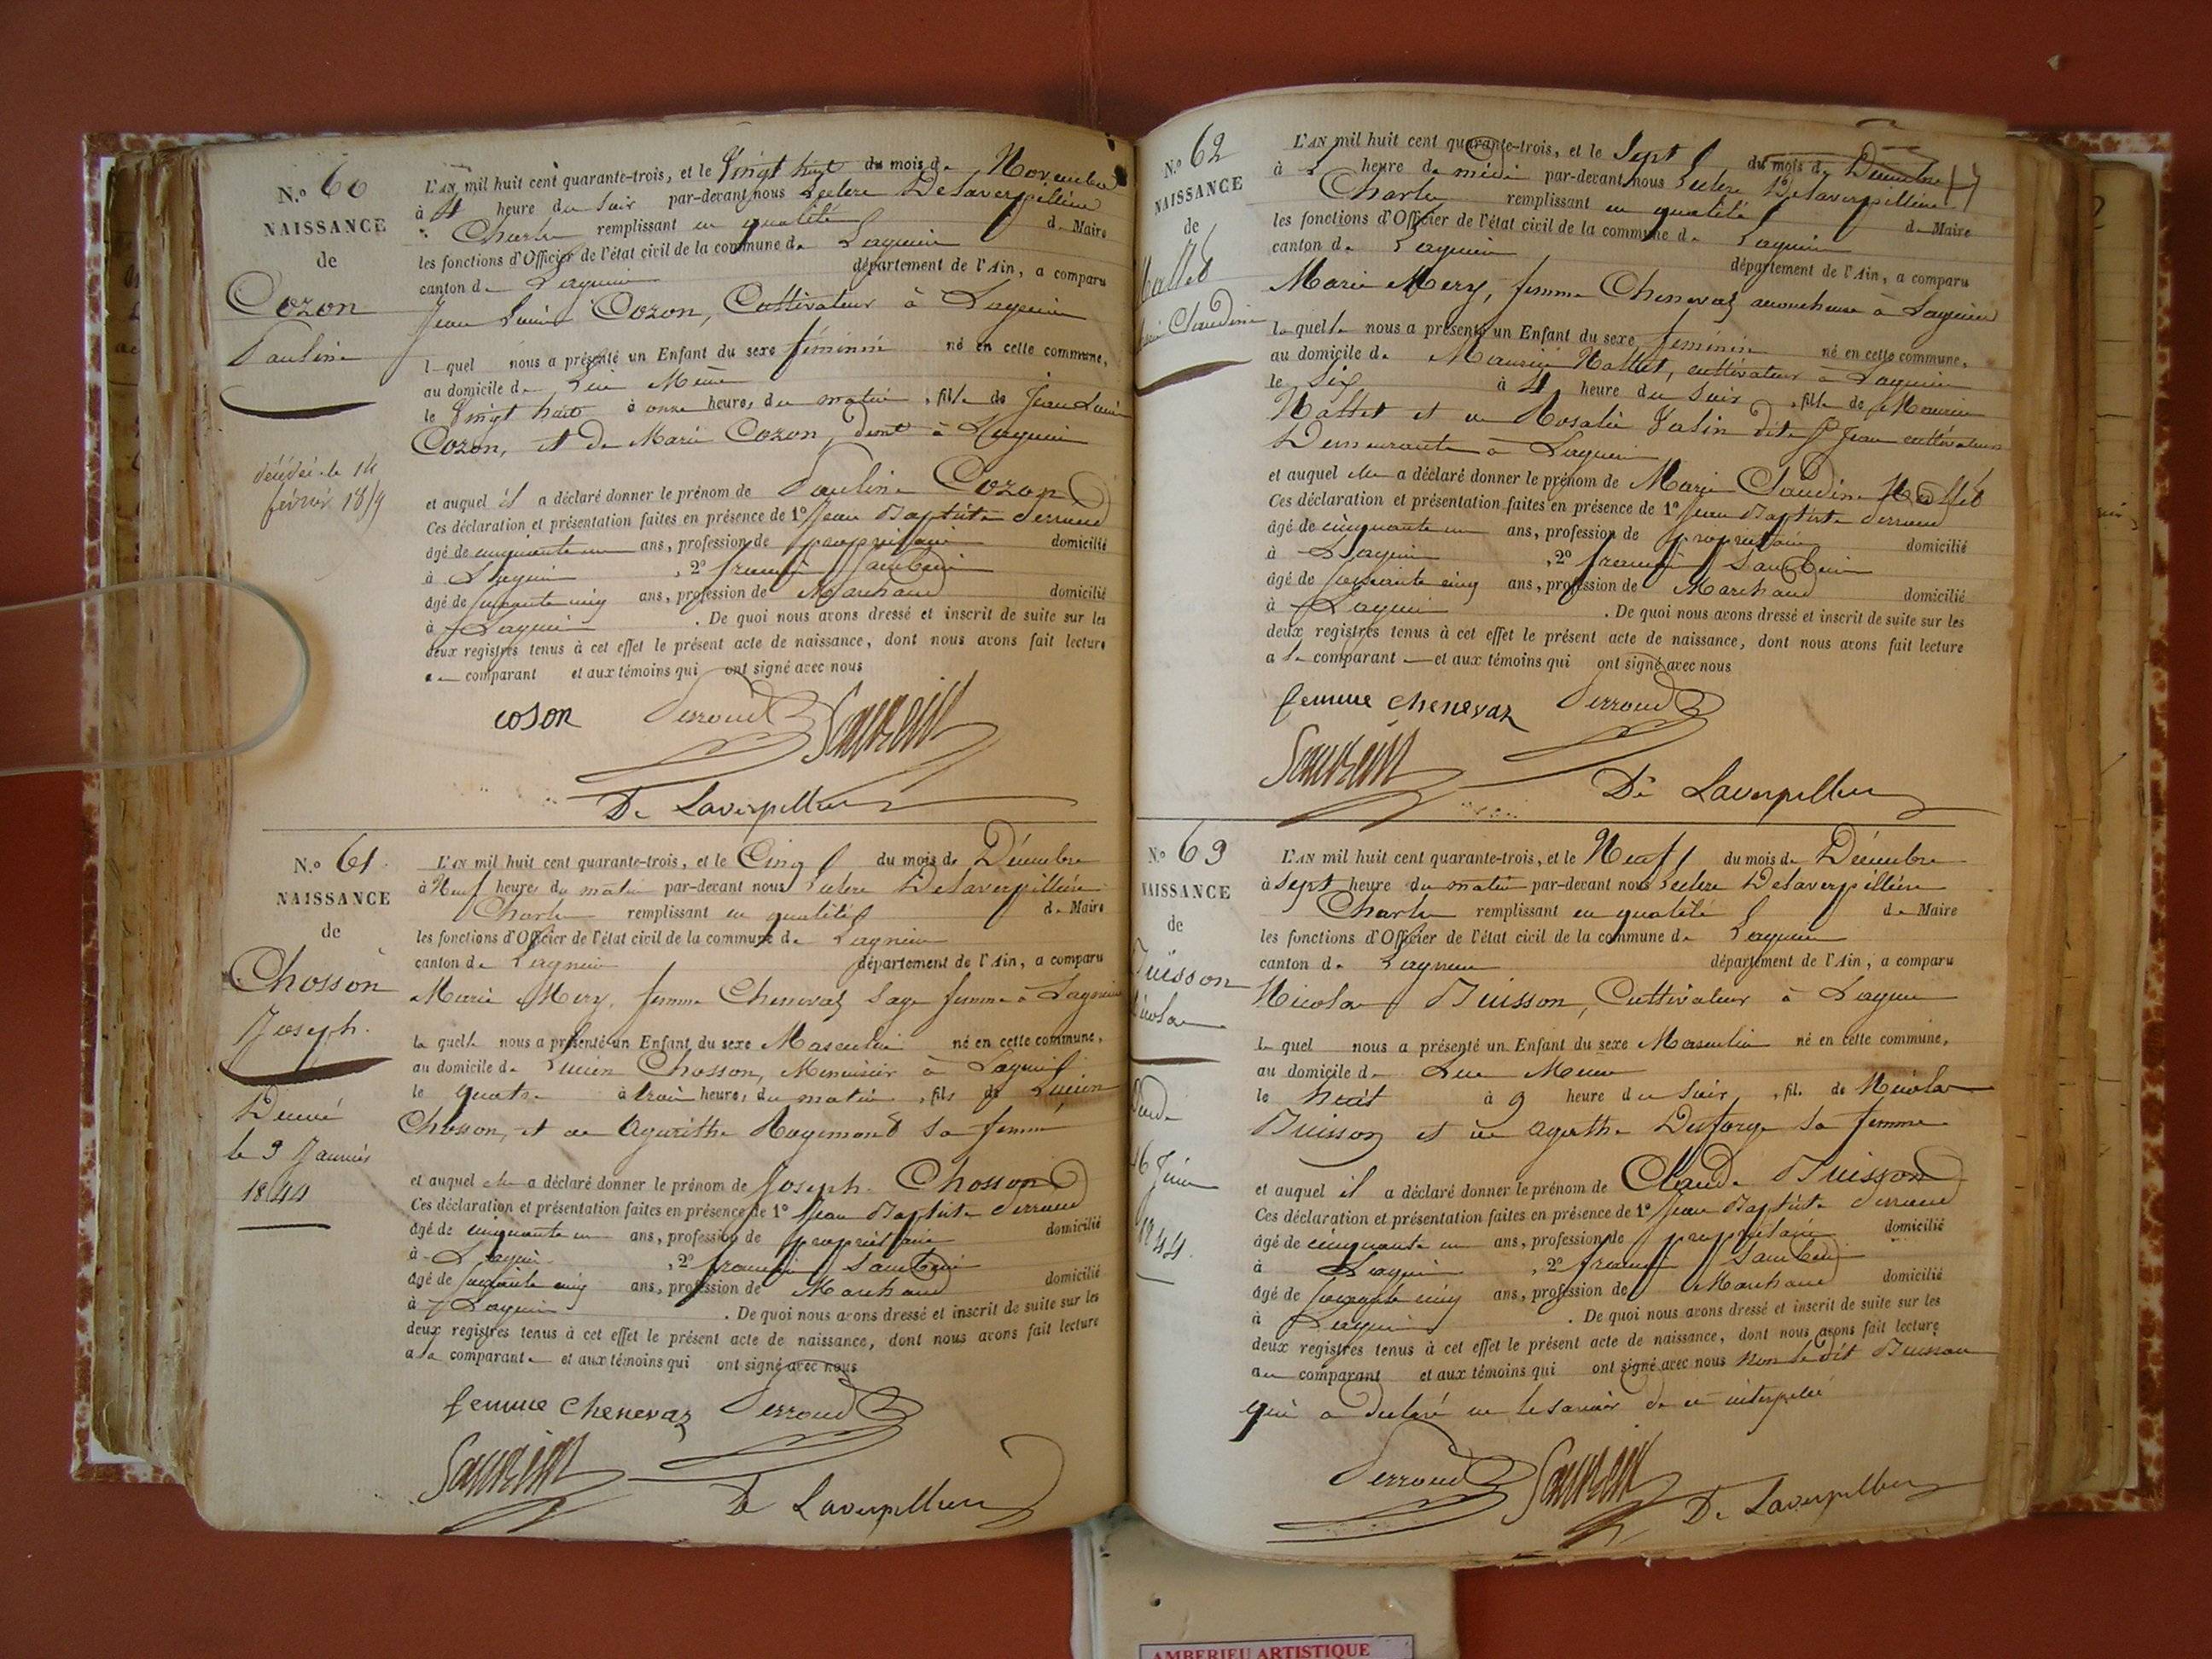 N.o 60
NAISSANCE
de
Cozon
Pauline
décédée le 14
février 18
L'AN mil huit cent quarante-trois, et le Vingt huit du mois de Novembre
à 4 heure du Soir par-devant nous Leclerc Delaverpillière
Charles remplissant en qualité de Maire
les fonctions d'Officier de l'état civil de la commune de Lagnieu
canton de Lagnieu département de l'Ain, a comparu
Jean Louis Cozon, Cultivateur à Lagnieu
lequel nous a présenté un Enfant du sexe féminin né en cette commune,
au domicile de Lui Même
le Vingt huit à onze heures du matin, fille de Jean Louis
Cozon, et de Marie Cozon, dem.t à Lagnieu
et auquel il a déclaré donner le prénom de Pauline Cozon
Ces déclaration et présentation faites en présence de 1o Jean Baptiste Perroud
âgé de cinquante un ans, profession de propriétaire domicilié
à Lagnieu, 2o françois
âgé de soixante cinq ans, profession de Marchand domicilié
à Lagnieu. De quoi nous avons dressé et inscrit de suite sur les
deux registres tenus à cet effet le présent acte de naissance, dont nous avons fait lecture
au comparant et aux témoins qui ont signé avec nous
coson Perroud
De Laverpilliere
N.o 61
NAISSANCE
de
Chosson
Joseph.
Décédé
le 9 Janvier
1844
L'AN mil huit cent quarante-trois, et le Cinq du mois de Décembre
à Neuf heures du matin par-devant nous Leclerc Delaverpillière
Charles remplissant en qualité de Maire
les fonctions d'Officier de l'état civil de la commune de Lagnieu
canton de Lagnieu département de l'Ain, a comparu
Marie Mery, femme Chenevaz Sage femme à Lagnieu
laquelle nous a présenté un Enfant du sexe Masculin né en cette commune,
au domicile de Lucien Chosson, Menuisier à Lagnieu
le quatre à trois heures du matin, fils de Lucien
Chosson, et de Agarithe Raymond sa femme
et auquel elle a déclaré donner le prénom de Joseph Chosson
Ces déclaration et présentation faites en présence de 1o Jean Baptiste Perroud
âgé de cinquante un ans, profession de propriétaire domicilié
à Lagnieu, 2o françois
âgé de soixante cinq ans, profession de Marchand domicilié
à Lagnieu. De quoi nous avons dressé et inscrit de suite sur les
deux registres tenus à cet effet le présent acte de naissance, dont nous avons fait lecture
a la comparante et aux témoins qui ont signé avec nous
femme chenevaz Perroud
De Laverpilliere
N.o 62
NAISSANCE
de
Claudine
L'AN mil huit cent quarante-trois, et le Sept du mois de Décembre
à heure de midi par-devant nous Leclerc Delaverpillière
Charles remplissant en qualité de Maire
les fonctions d'Officier de l'état civil de la commune de Lagnieu
canton de Lagnieu département de l'Ain, a comparu
Marie Mery, femme Chenevaz accoucheuse à Lagnieu
laquelle nous a présenté un Enfant du sexe féminin né en cette commune,
au domicile de Maurice Nallet, cultivateur à Lagnieu
le Six à 4 heure du Soir, fille de Maurice
Nallet et de Rosalie Valin dite St Jean cultivateurs
Demeurants à Lagnieu
et auquel elle a déclaré donner le prénom de Marie Claudine Nallet
Ces déclaration et présentation faites en présence de 1o Jean Baptiste Perroud
âgé de cinquante un ans, profession de propriétaire domicilié
à Lagnieu, 2o françois
âgé de soixante cinq ans, profession de Marchand domicilié
à Lagnieu. De quoi nous avons dressé et inscrit de suite sur les
deux registres tenus à cet effet le présent acte de naissance, dont nous avons fait lecture
a la comparant et aux témoins qui ont signé avec nous
femme chenevaz Perroud
De Laverpilliere
N.o 63
NAISSANCE
de
Buisson
16 Juin
1844.
L'AN mil huit cent quarante-trois, et le Neuf du mois de Décembre
à sept heure du matin par-devant nous Leclerc Delaverpillière
Charles remplissant en qualité de Maire
les fonctions d'Officier de l'état civil de la commune de Lagnieu
canton de Lagnieu département de l'Ain, a comparu
Nicolas Buisson, Cultivateur à Lagnieu
lequel nous a présenté un Enfant du sexe Masculin né en cette commune,
au domicile de Lui Même
le huit à 9 heure du Soir, fils de Nicolas
Buisson et de agathe Desforge sa femme
et auquel il a déclaré donner le prénom de Claude Buisson
Ces déclaration et présentation faites en présence de 1o Jean Baptiste Perroud
âgé de cinquante un ans, profession de propriétaire domicilié
à Lagnieu, 2o françois
âgé de soixante cinq ans, profession de Marchand domicilié
à Lagnieu. De quoi nous avons dressé et inscrit de suite sur les
deux registres tenus à cet effet le présent acte de naissance, dont nous avons fait lecture
au comparant et aux témoins qui ont signé avec nous non le dit Buisson
qui a déclaré ne le savoir de ce interpellé
Perroud
De Laverpilliere
AMBERIEU ARTISTIQUE